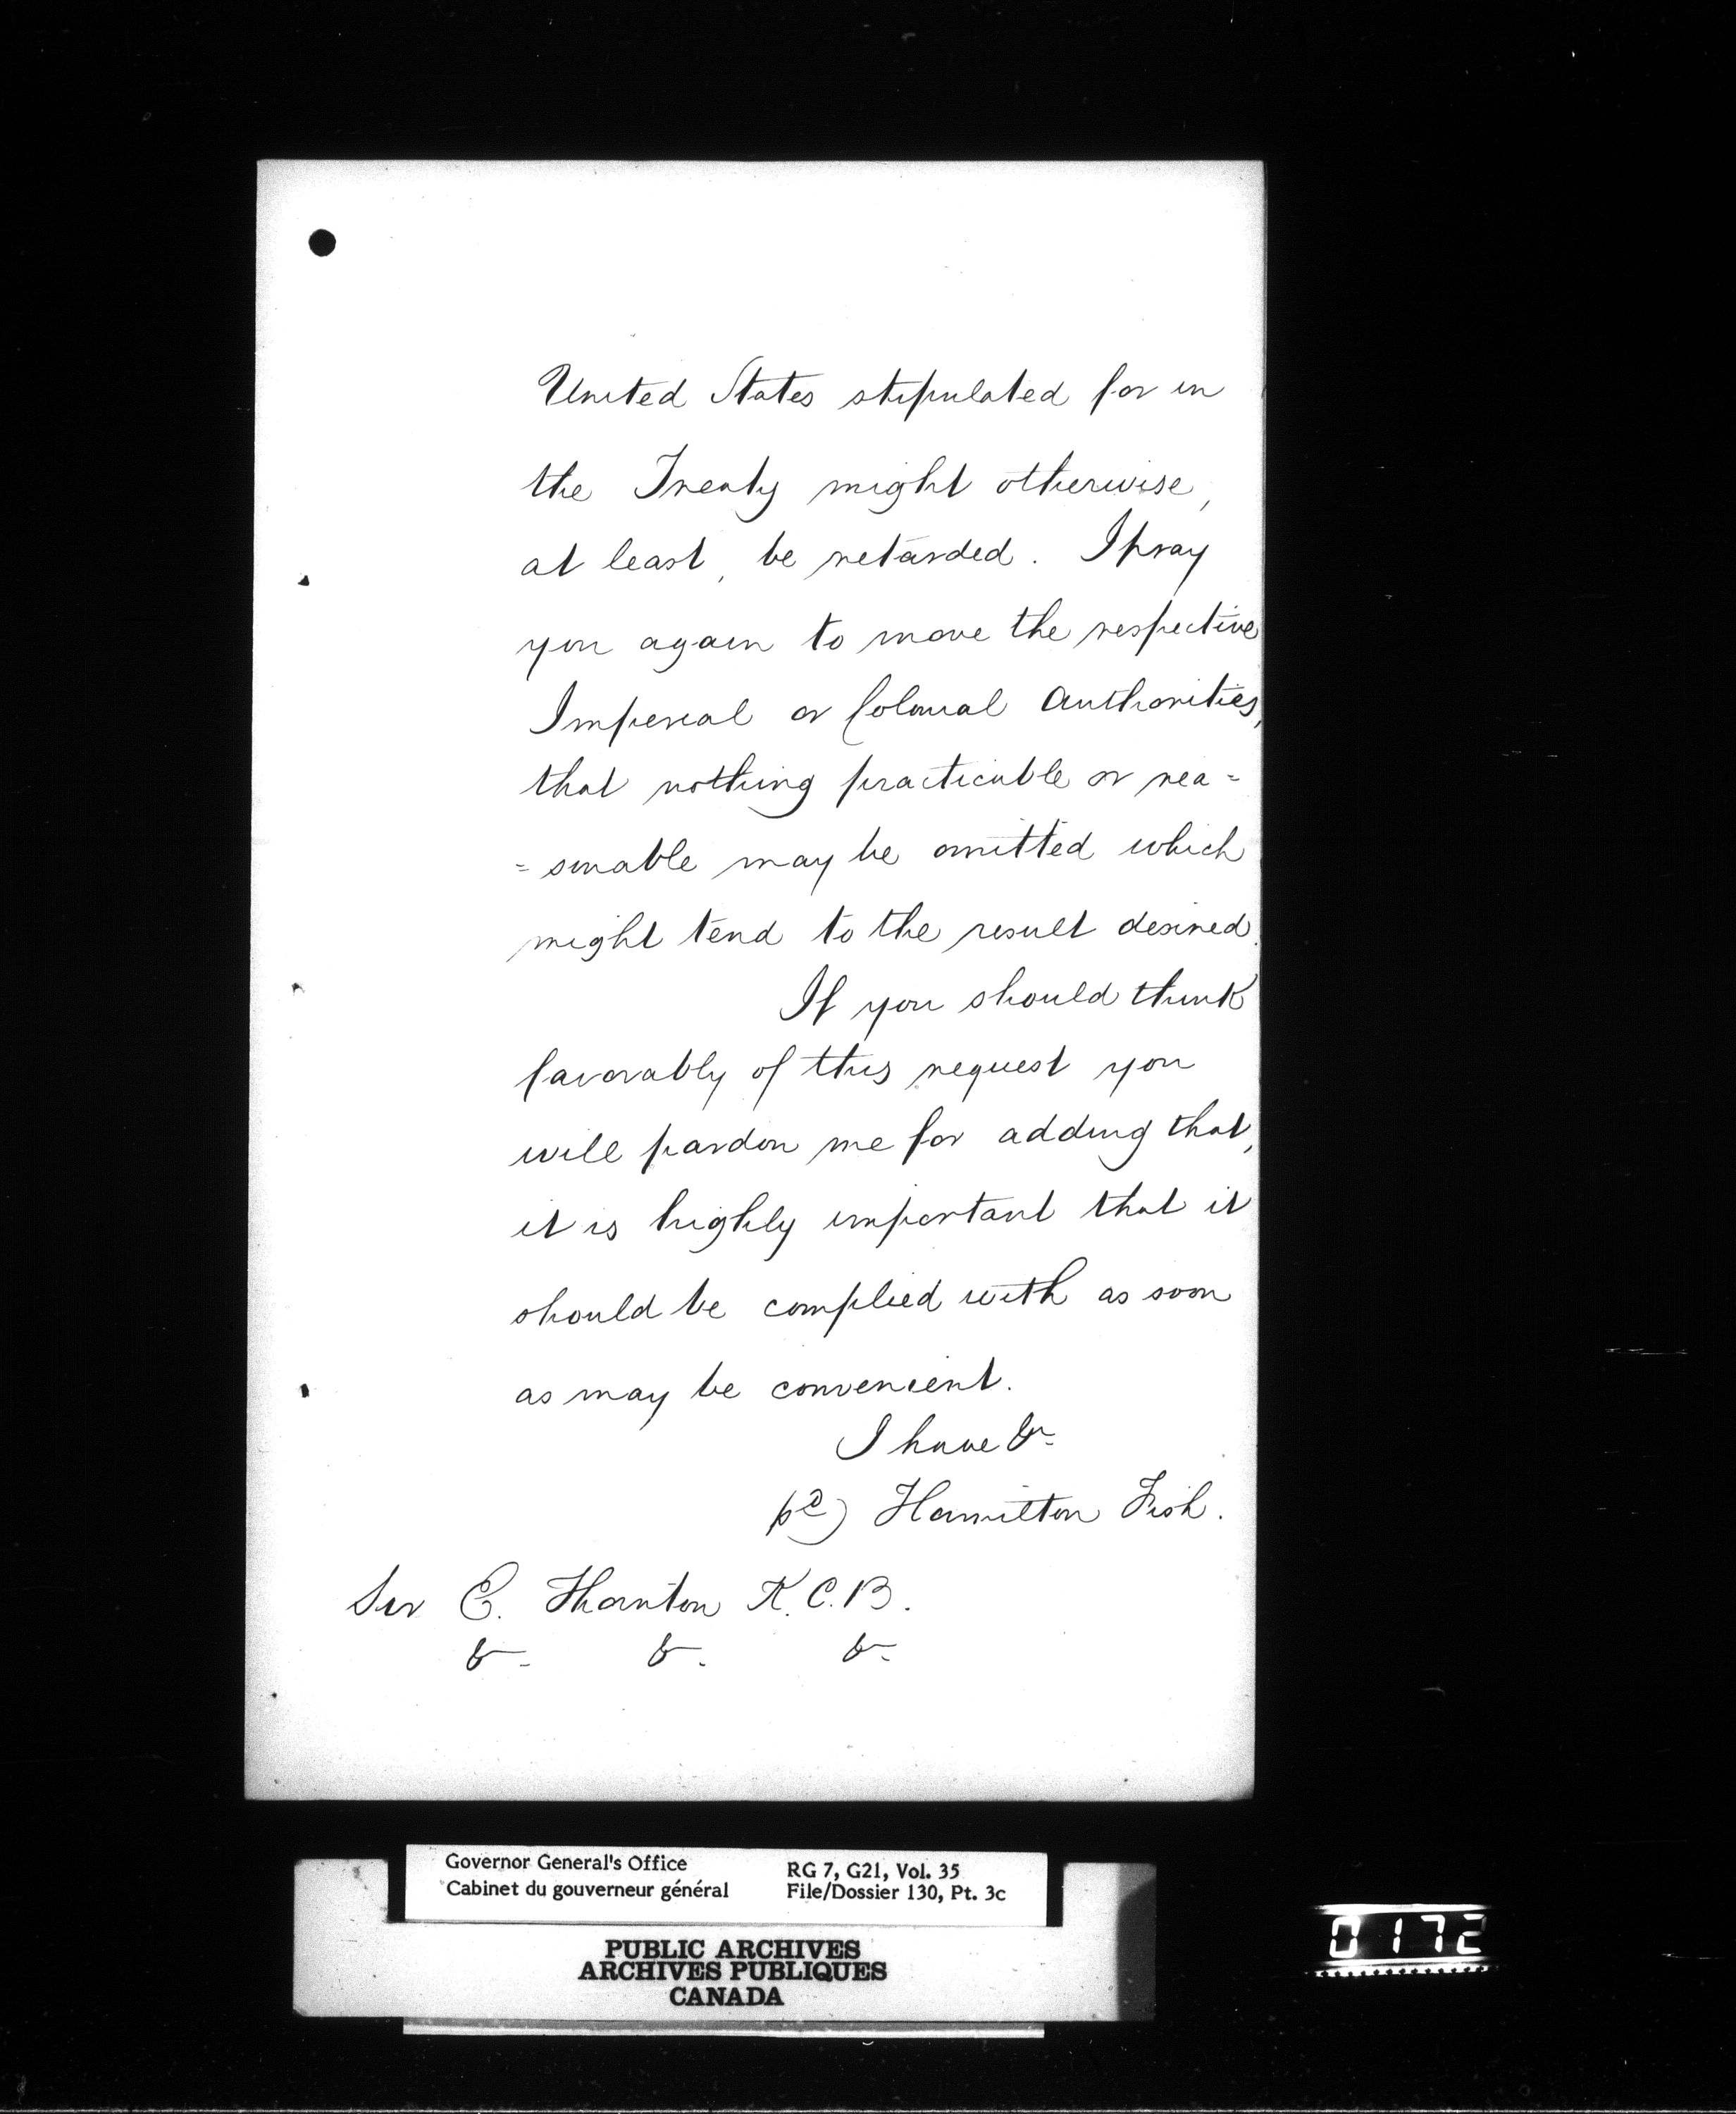 United States stipulated for in
the Treaty might otherwise,
at least, be retarded. I pray
you again to move the respective
Imperial or Colonial Authorities,
that nothing practicable or rea=
=sonable may be omitted which
might tend to the result desired.
If you should think
favorably of this request you
will pardon me for adding that,
it is highly important that it
should be complied with as soon
as may be convenient.
I have &c.
Hamilton Fish.
Sir E. Thornton K.C.B.
&c. &c. &c.
Governor General's Office
Cabinet du gouverneur général
RG 7, G21, Vol. 35
File/Dossier 130, Pt. 3c
PUBLIC ARCHIVES
ARCHIVES PUBLIQUES
CANADA
0172